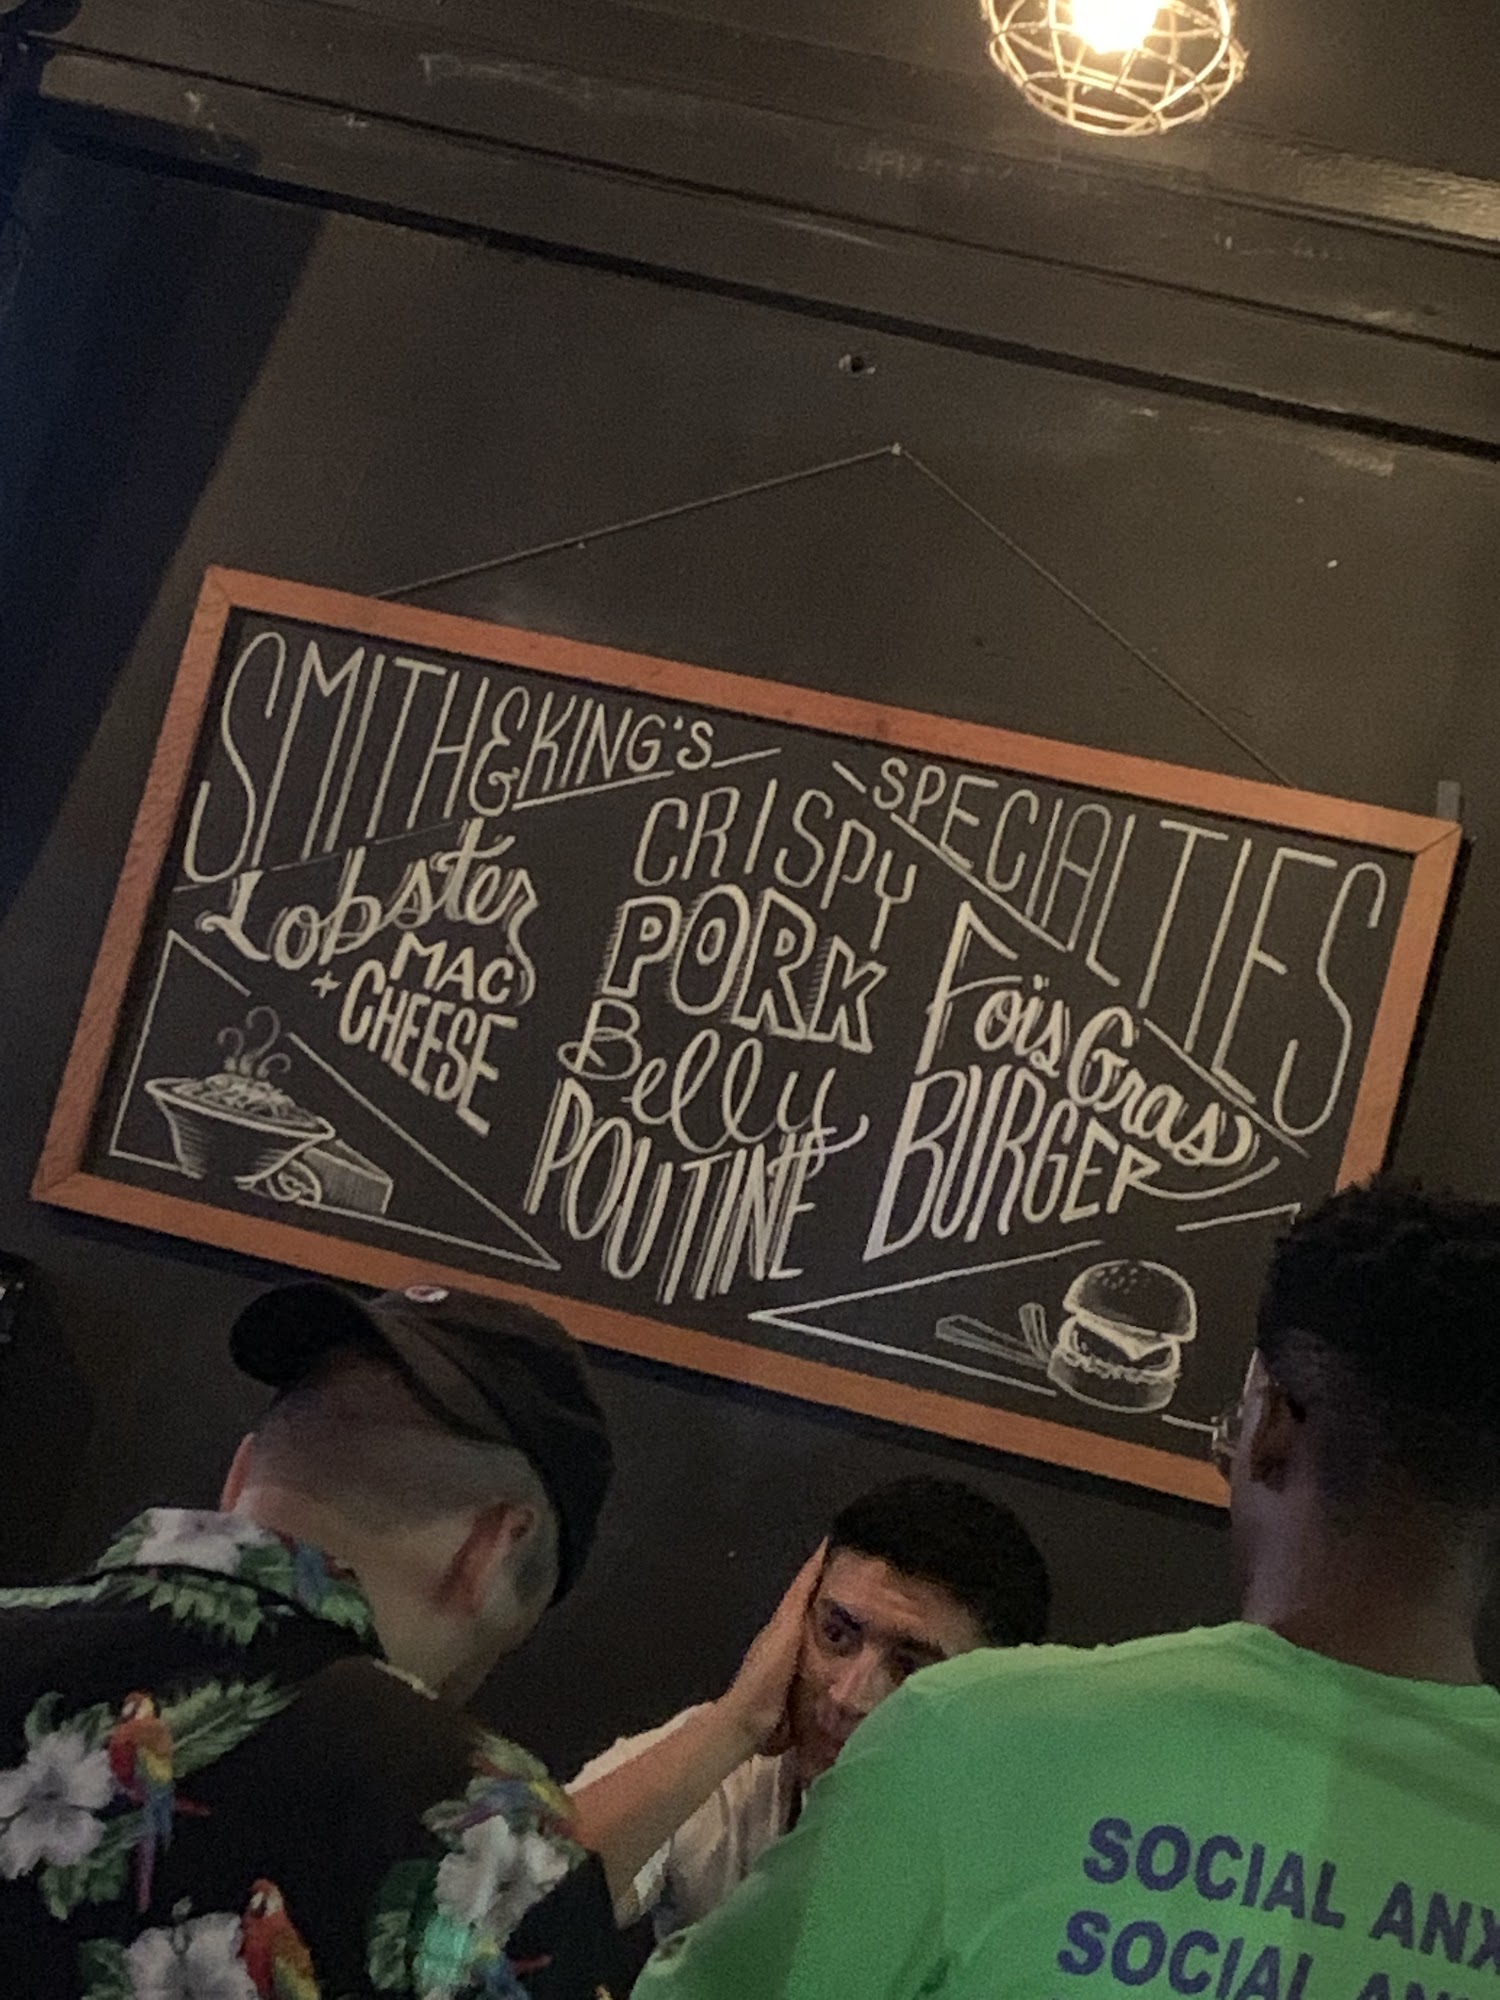 SMITH&KING'S
SPECIALTIES
Lobster
MAC
+ CHEESE
CRISPY
PORK
Belly
POUTINE
Foïs Gras
BURGER
SOCIAL
SOCIAL